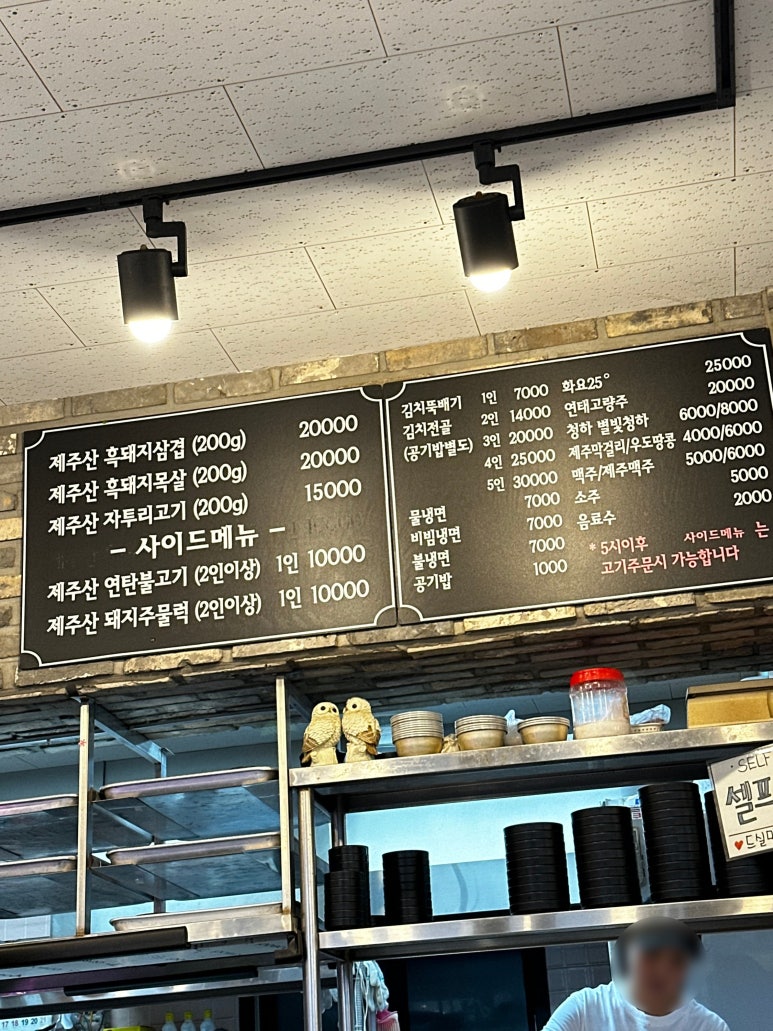 제주산 흑돼지삼겹 (200g) 20000
제주산 흑돼지목살 (200g) 20000
제주산 자투리고기 (200g) 15000
- 사이드메뉴 -
제주산 연탄불고기 (2인이상) 1인 10000
제주산 돼지주물럭 (2인이상) 1인 10000
김치뚝배기 1인 7000
김치전골 2인 14000
(공기밥별도) 3인 20000
4인 25000
5인 30000
물냉면 7000
비빔냉면 7000
불냉면 7000
공기밥 1000
화요25° 25000
연태고량주 20000
청하 별빛청하 6000/8000
제주막걸리/우도땅콩 4000/6000
맥주/제주맥주 5000/6000
소주 5000
음료수 2000
* 5시이후 사이드메뉴 는
고기주문시 가능합니다
· SELF
셀프
♥드실
17 18 19 20